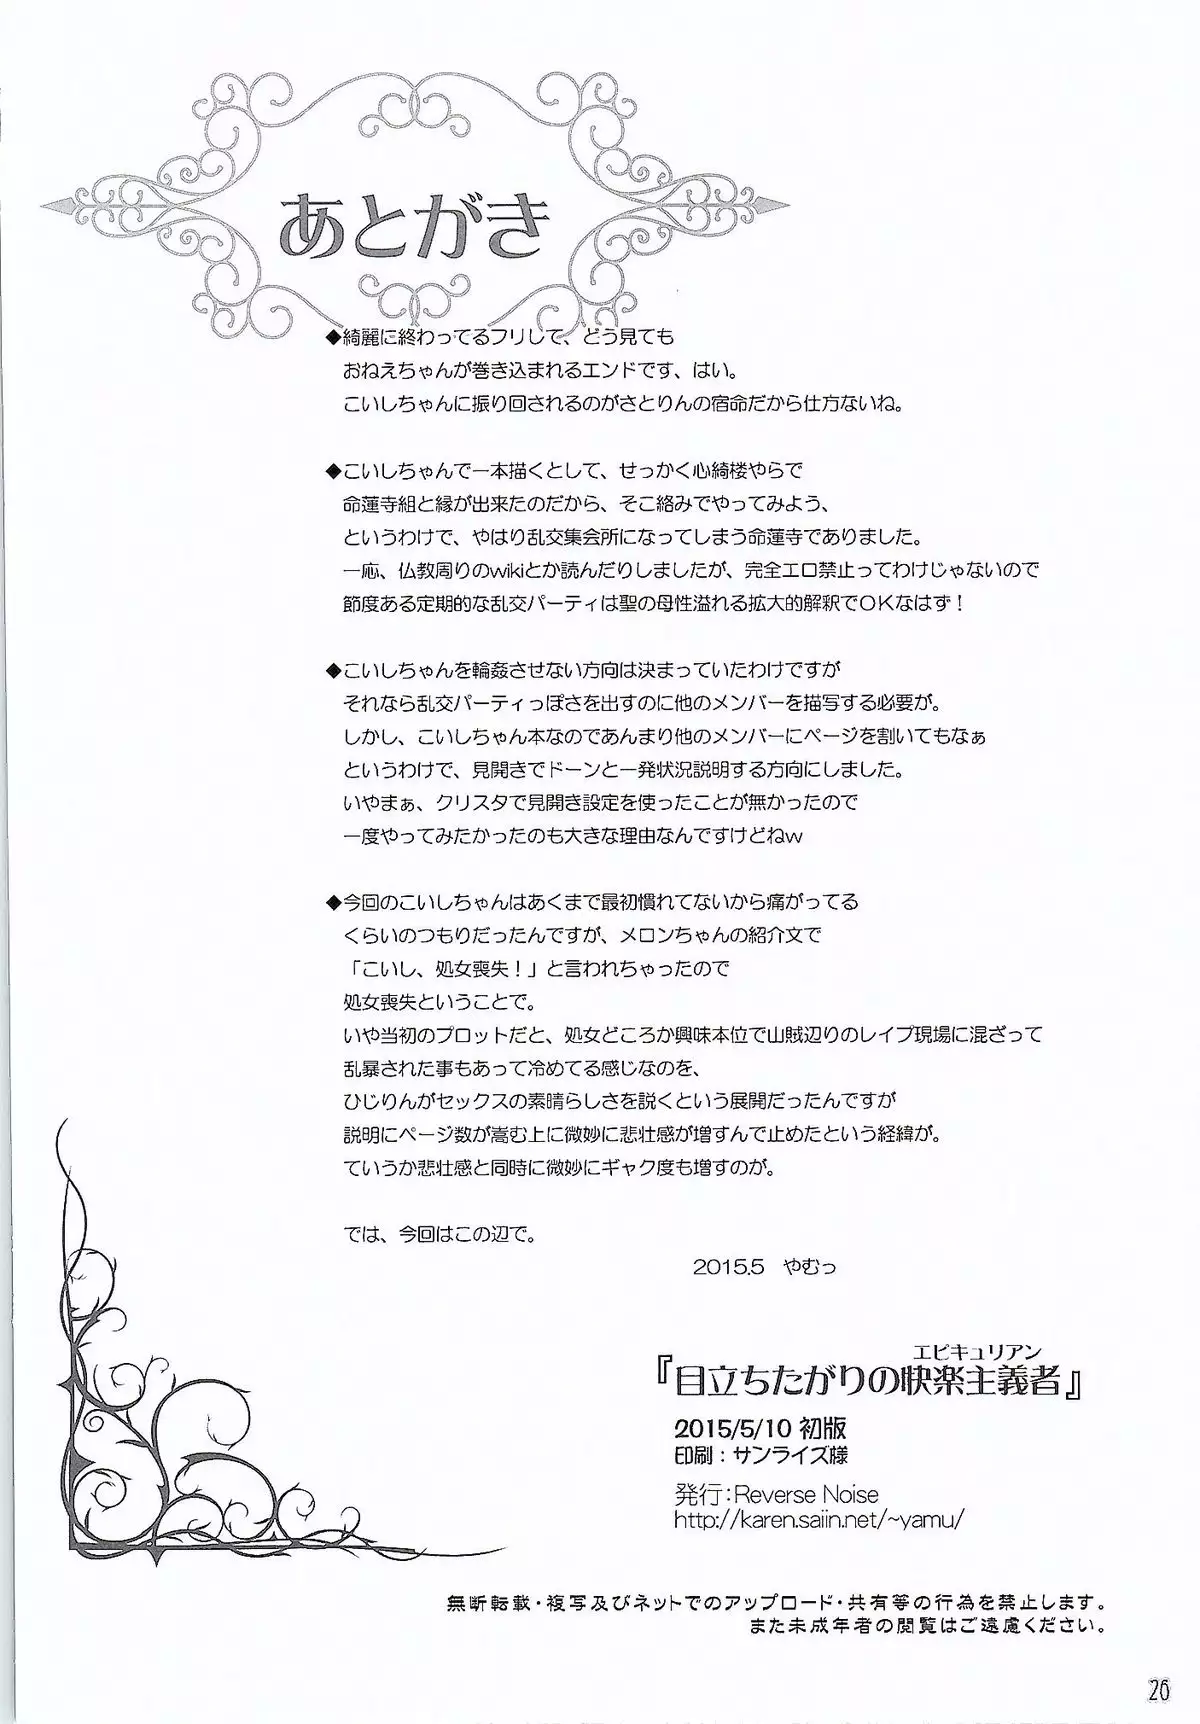 あとがき
◆綺麗に終わってるフリして、どう見ても
おねえちゃんが巻き込まれるエンドです、はい。
こいしちゃんに振り回されるのがさとりんの宿命だから仕方ないね。
◆こいしちゃんで一本描くとして、せっかく心綺楼やらで
命蓮寺組と縁が出来たのだから、そこ絡みでやってみよう、
というわけで、やはり乱交集会所になってしまう命蓮寺でありました。
一応、仏教周りのwikiとか読んだりしましたが、完全エロ禁止ってわけじゃないので
節度ある定期的な乱交パーティは聖の母性溢れる拡大的解釈でOKなはず！
◆こいしちゃんを輪姦させない方向は決まっていたわけですが
それなら乱交パーティっぽさを出すのに他のメンバーを描写する必要が。
しかし、こいしちゃん本なのであんまり他のメンバーにページを割いてもなぁ
というわけで、見開きでドーンと一発状況説明する方向にしました。
いやまぁ、クリスタで見開き設定を使ったことが無かったので
一度やってみたかったのも大きな理由なんですけどねw
◆今回のこいしちゃんはあくまで最初慣れてないから痛がってる
くらいのつもりだったんですが、メロンちゃんの紹介文で
「こいし、処女喪失！」と言われちゃったので
処女喪失ということで。
いや当初のプロットだと、処女どころか興味本位で山賊辺りのレイプ現場に混ざって
乱暴された事もあって冷めてる感じなのを、
ひじりんがセックスの素晴らしさを説くという展開だったんですが
説明にページ数が嵩む上に微妙に悲壮感が増すんで止めたという経緯が。
ていうか悲壮感と同時に微妙にギャク度も増すのが。
では、今回はこの辺で。
2015.5　やむっ
エピキュリアン
『目立ちたがりの快楽主義者』
2015/5/10 初版
印刷：サンライズ様
発行：Reverse Noise
http://karen.saiin.net/~yamu/
無断転載・複写及びネットでのアップロード・共有等の行為を禁止します。
また未成年者の閲覧はご遠慮ください。
26